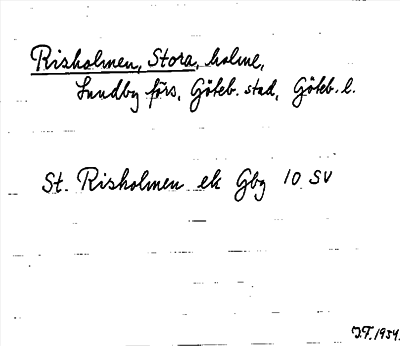 Risholmen, Stora, holme,
Lundby förs, Göteb. stad, Göteb. l.
St. Risholmen ek Gbg 10 SV
J.F. 1934.